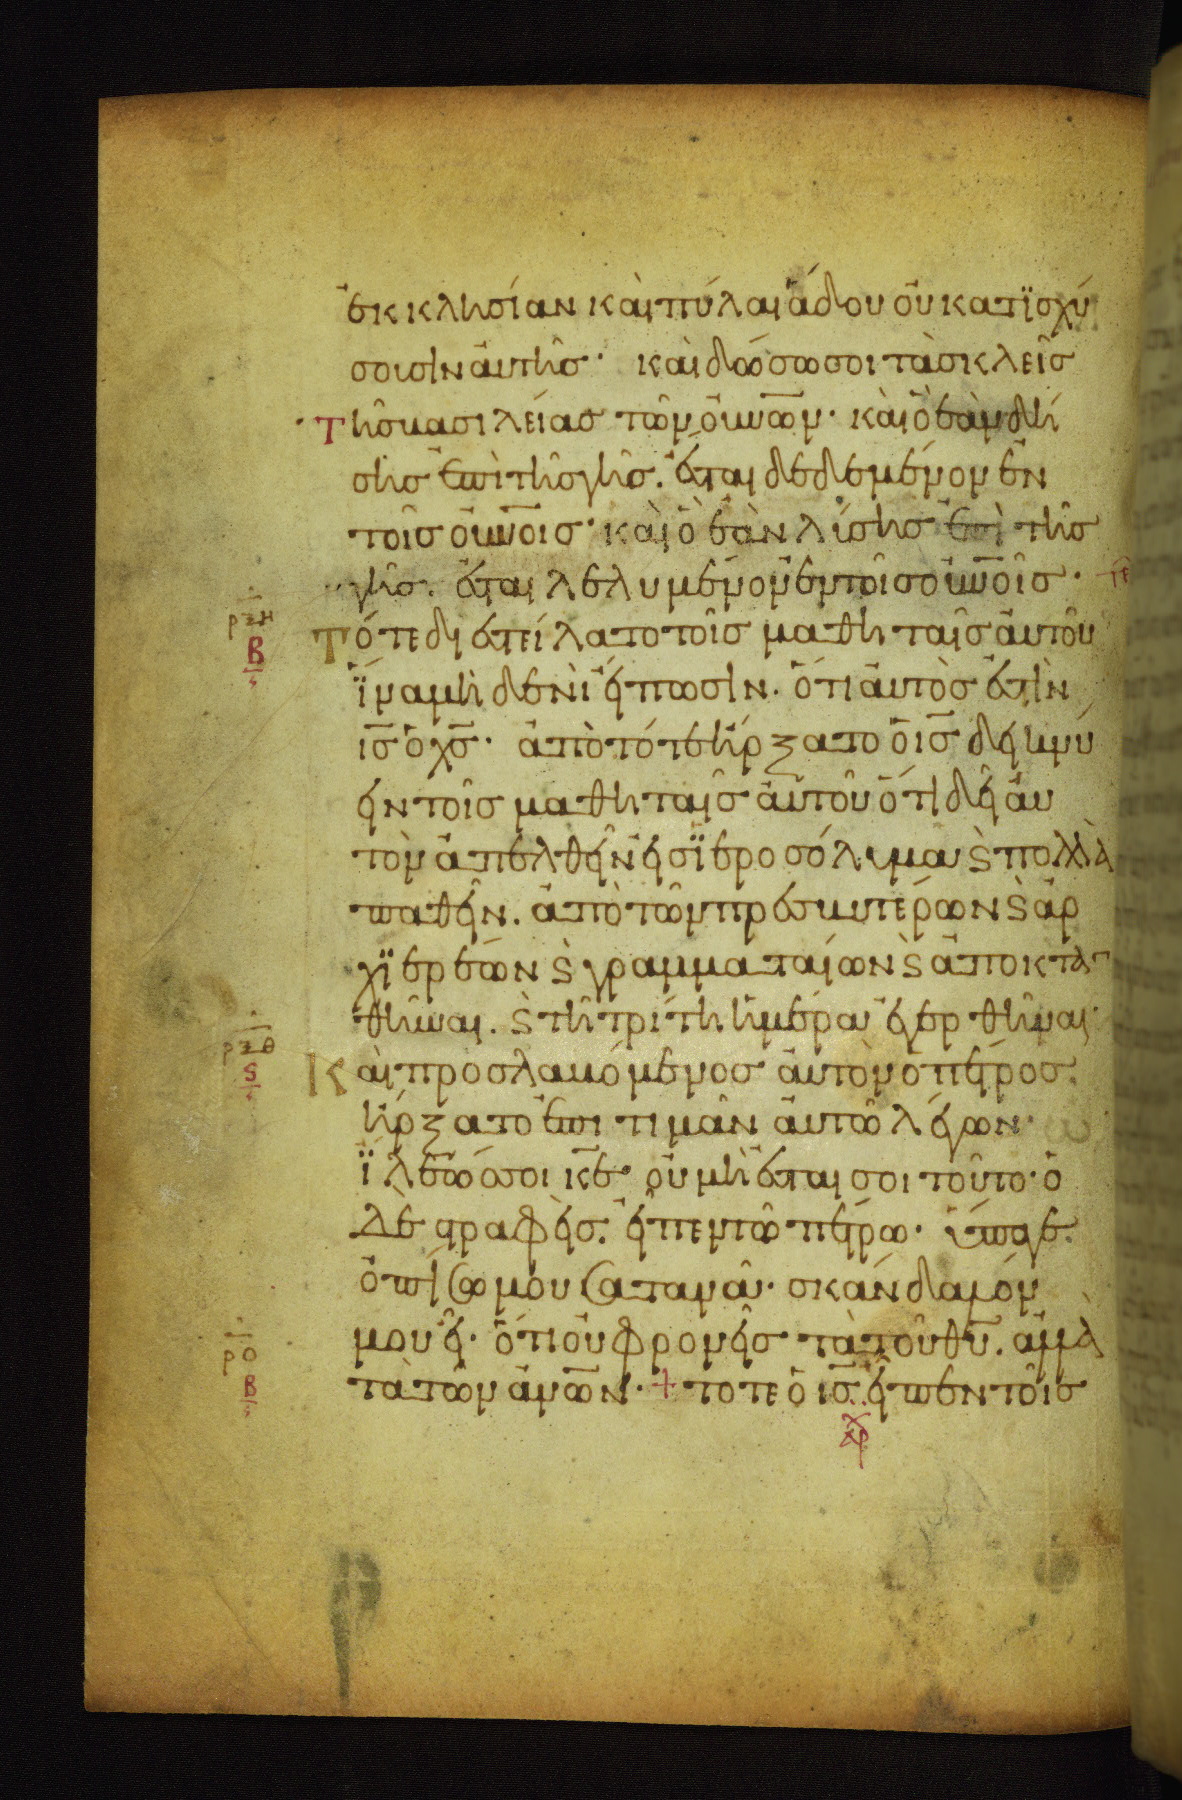 ἐκκλησίαν καὶ πύλαι ἅδου οὐ κατϊσχύ
σοισιν αὐτῆς· καὶ δώσω σοι τὰς κλεῖς
τῆς βασιλείας τῶν οὐν͞ων· καὶ ὃ ἐὰν δή
σης ἐπὶ τῆς γῆς. ἔσται δεδεμένον ἐν
τοῖς οὐν͞οις· καὶ ὃ ἐὰν λύσης ἐπὶ τῆς
γῆς. ἔσται λελυμένον ἐν τοῖς οὐν͞οῖς·
ρξη
β
Τότε διεστείλατο τοῖς μαθηταῖς αὐτοῦ
ἵνα μὴ δενὶ εἴπωσιν. ὅτι αὐτὸς ἐστὶν
ις͞ ὁ χς͞· ἀπὸ τότε ἤρξατο ὁ ις͞ δεικνύ
ειν τοῖς μαθηταῖς αὐτοῦ ὅτι δεῖ αὐ
τὸν ἀπελθεῖν εἰς ϊεροσόλυμα ϛ̀ πολλὰ
παθεῖν. ἀπὸ τῶν πρεσβυτέρων ϛ̀ ἀρ
χϊερέων ϛ̀ γραμματαίων ϛ̀ ἀποκταν
θῆναι. ϛ̀ τῆ τρίτη ἡμέρα ἐγερθῆναι·
ρξθ
ϛ
Καὶ προσλαβόμενος αὐτὸν ὁ πέτρος.
ἤρξατο ἐπιτιμᾶν αὐτῶ λέγων·
ἵλεώς σοι κ͞ε οὐ μὴ ἔσται σοι τοῦτο· ὁ
δὲ στραφεὶς. εἶπεν τῶ πέτρω· ὕπαγε.
ὀπίσω μου σατανᾶ· σκάνδαλόν
μου εἶ. ὅτι οὐ φρονεῖς τὰ τοῦ θυ͞. ἀλλὰ
ρο
β
τὰ τῶν ἀν͞ων· + τοτε ὁ ις͞ εἶπεν τοῖς